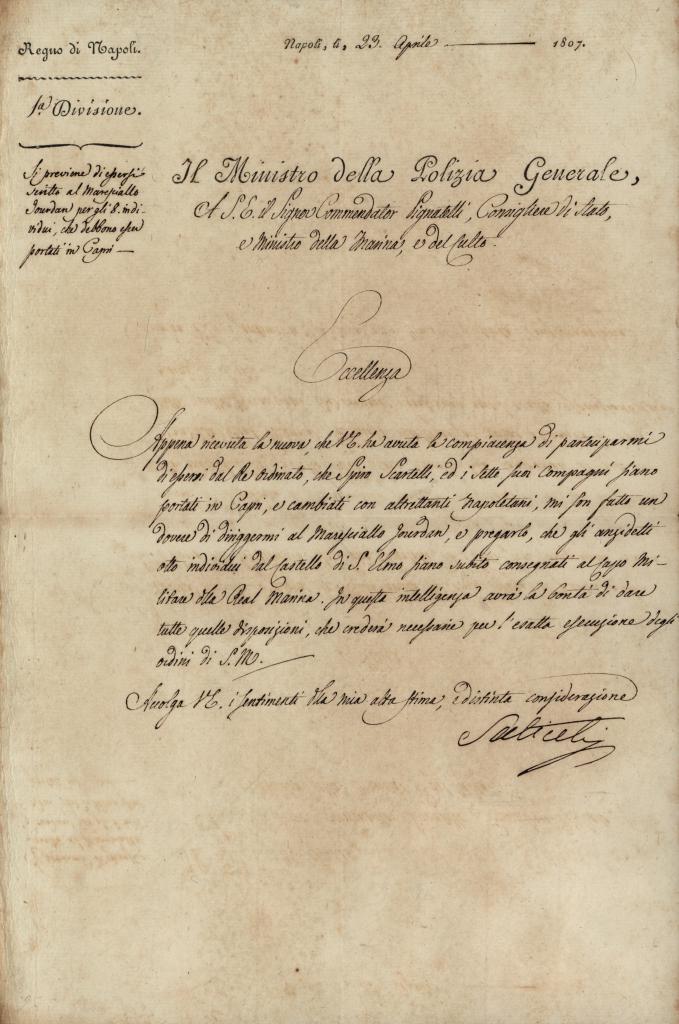 Regno di Napoli.
Napoli, li, 23. Aprile 1807.
1.a Divisione.
Si previene d'essersi
scritto al Maresciallo
Jourdan per gli 8. indi-
vidui, che debbono esser
portati in Capri —
Il Ministro della Polizia Generale,
A S. E. il Signor Commendator Pignatelli, Consigliere di Stato,
e Ministro della Marina, e del Culto.
Eccellenza
Appena ricevuta la nuova, che V.E. ha avuta la compiacenza di parteciparmi
d'essersi dal Re ordinato, che Spiro Scartelli, ed i sette suoi compagni siano
portati in Capri, e cambiati con altrettanti Napoletani, mi son fatto un
dovere di dirigermi al Maresciallo Jourdan, e pregarlo, che gli anzidetti
otto individui dal Castello di S. Elmo siano subito consegnati al Capo Mi-
litare dla Real Marina. In questa intelligenza avrà la bontà di dare
tutte quelle disposizioni, che crederà necessarie per l'esatta esecuzione degli
ordini di S. M.
Accolga V.E. i sentimenti dla mia alta stima, e distinta considerazione
Saliceti